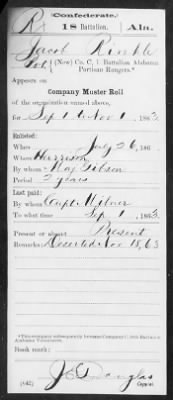 Confederate.
R 18 Battalion. Ala.
Jacob Rinkle
Pvt (New) Co. C, 1 Battalion Alabama
Partisan Rangers.*
Appears on
Company Muster Roll
of the organization named above,
for Sep 1 to Nov 1, 1863
Enlisted:
When July 26, 186
Where Harrison
By whom Maj Gibson
Period 3 years
Last paid:
By whom Capt Milner
To what time Sep 1, 1863.
Present or absent Present
Remarks: Deserted Nov 18, 63
*This company subsequently became Company
Alabama Volunteers.
Book mark:
J Douglas
(642) Copyist.